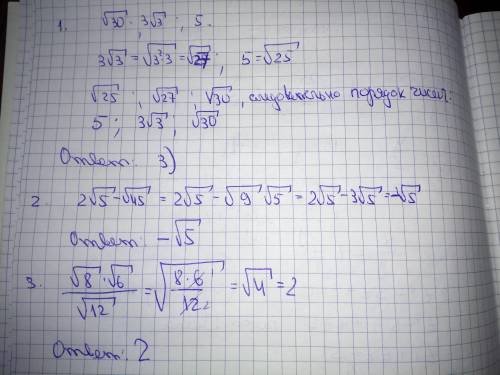 1. √30 ; 3√3 ; 5.
3√3 = √3²·3 = √27 ; 5 = √25
√25 ; √27 ; √30 , следовательно порядок чисел:
5 ; 3√3 ; √30
Ответ: 3)
2. 2√5 - √45 = 2√5 - √9 √5 = 2√5 - 3√5 = -√5
Ответ: -√5
3. √8 · √6 / √12 = √8·6/12 = √4 = 2
Ответ: 2